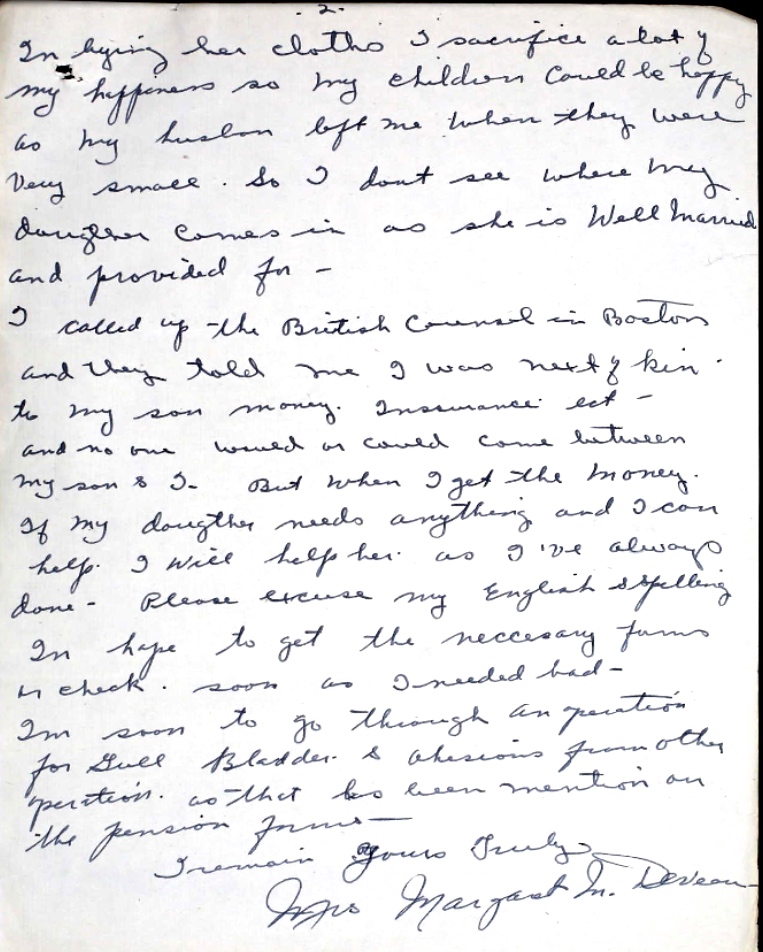 - 2 -
In bying her cloths I sacrifice a lot of
my happiness so my children could be happy
as my husban left me when they were
very small. So I dont see where my
daugther comes in as she is Well Married
and provided for -
I called up the British Counsel in Boston
and they told me I was next of kin
to my son money. Inssurance ect -
and no one would or could come between
my son & I. But when I get the money.
If my daugther needs anything and I can
help. I will help her. as I've always
done - Please excuse my English & spelling
In hope to get the neccesary forms
or check. soon as I needed bad -
Im soon to go through an operation
for Gull Bladder. & ahesions from other
operation. as that has been mention on
the pension forms -
I remain Yours Truly
Mrs Margaret M. Deveau